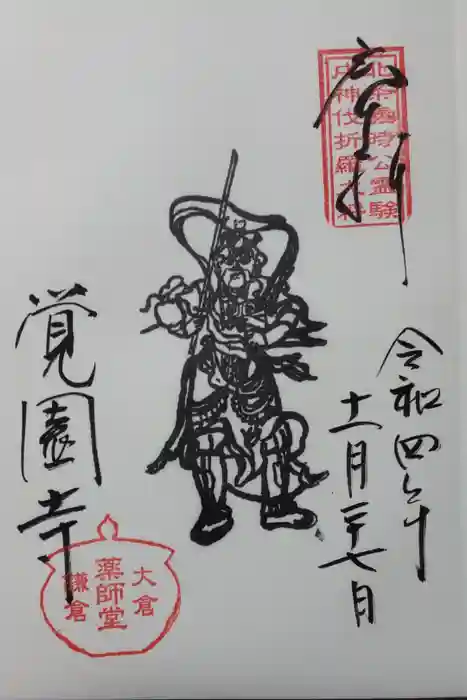 奉拝
北条義時公霊験
戌神伐折羅大将
令和四年
十一月二十七日
覚園寺
大倉
薬師堂
鎌倉